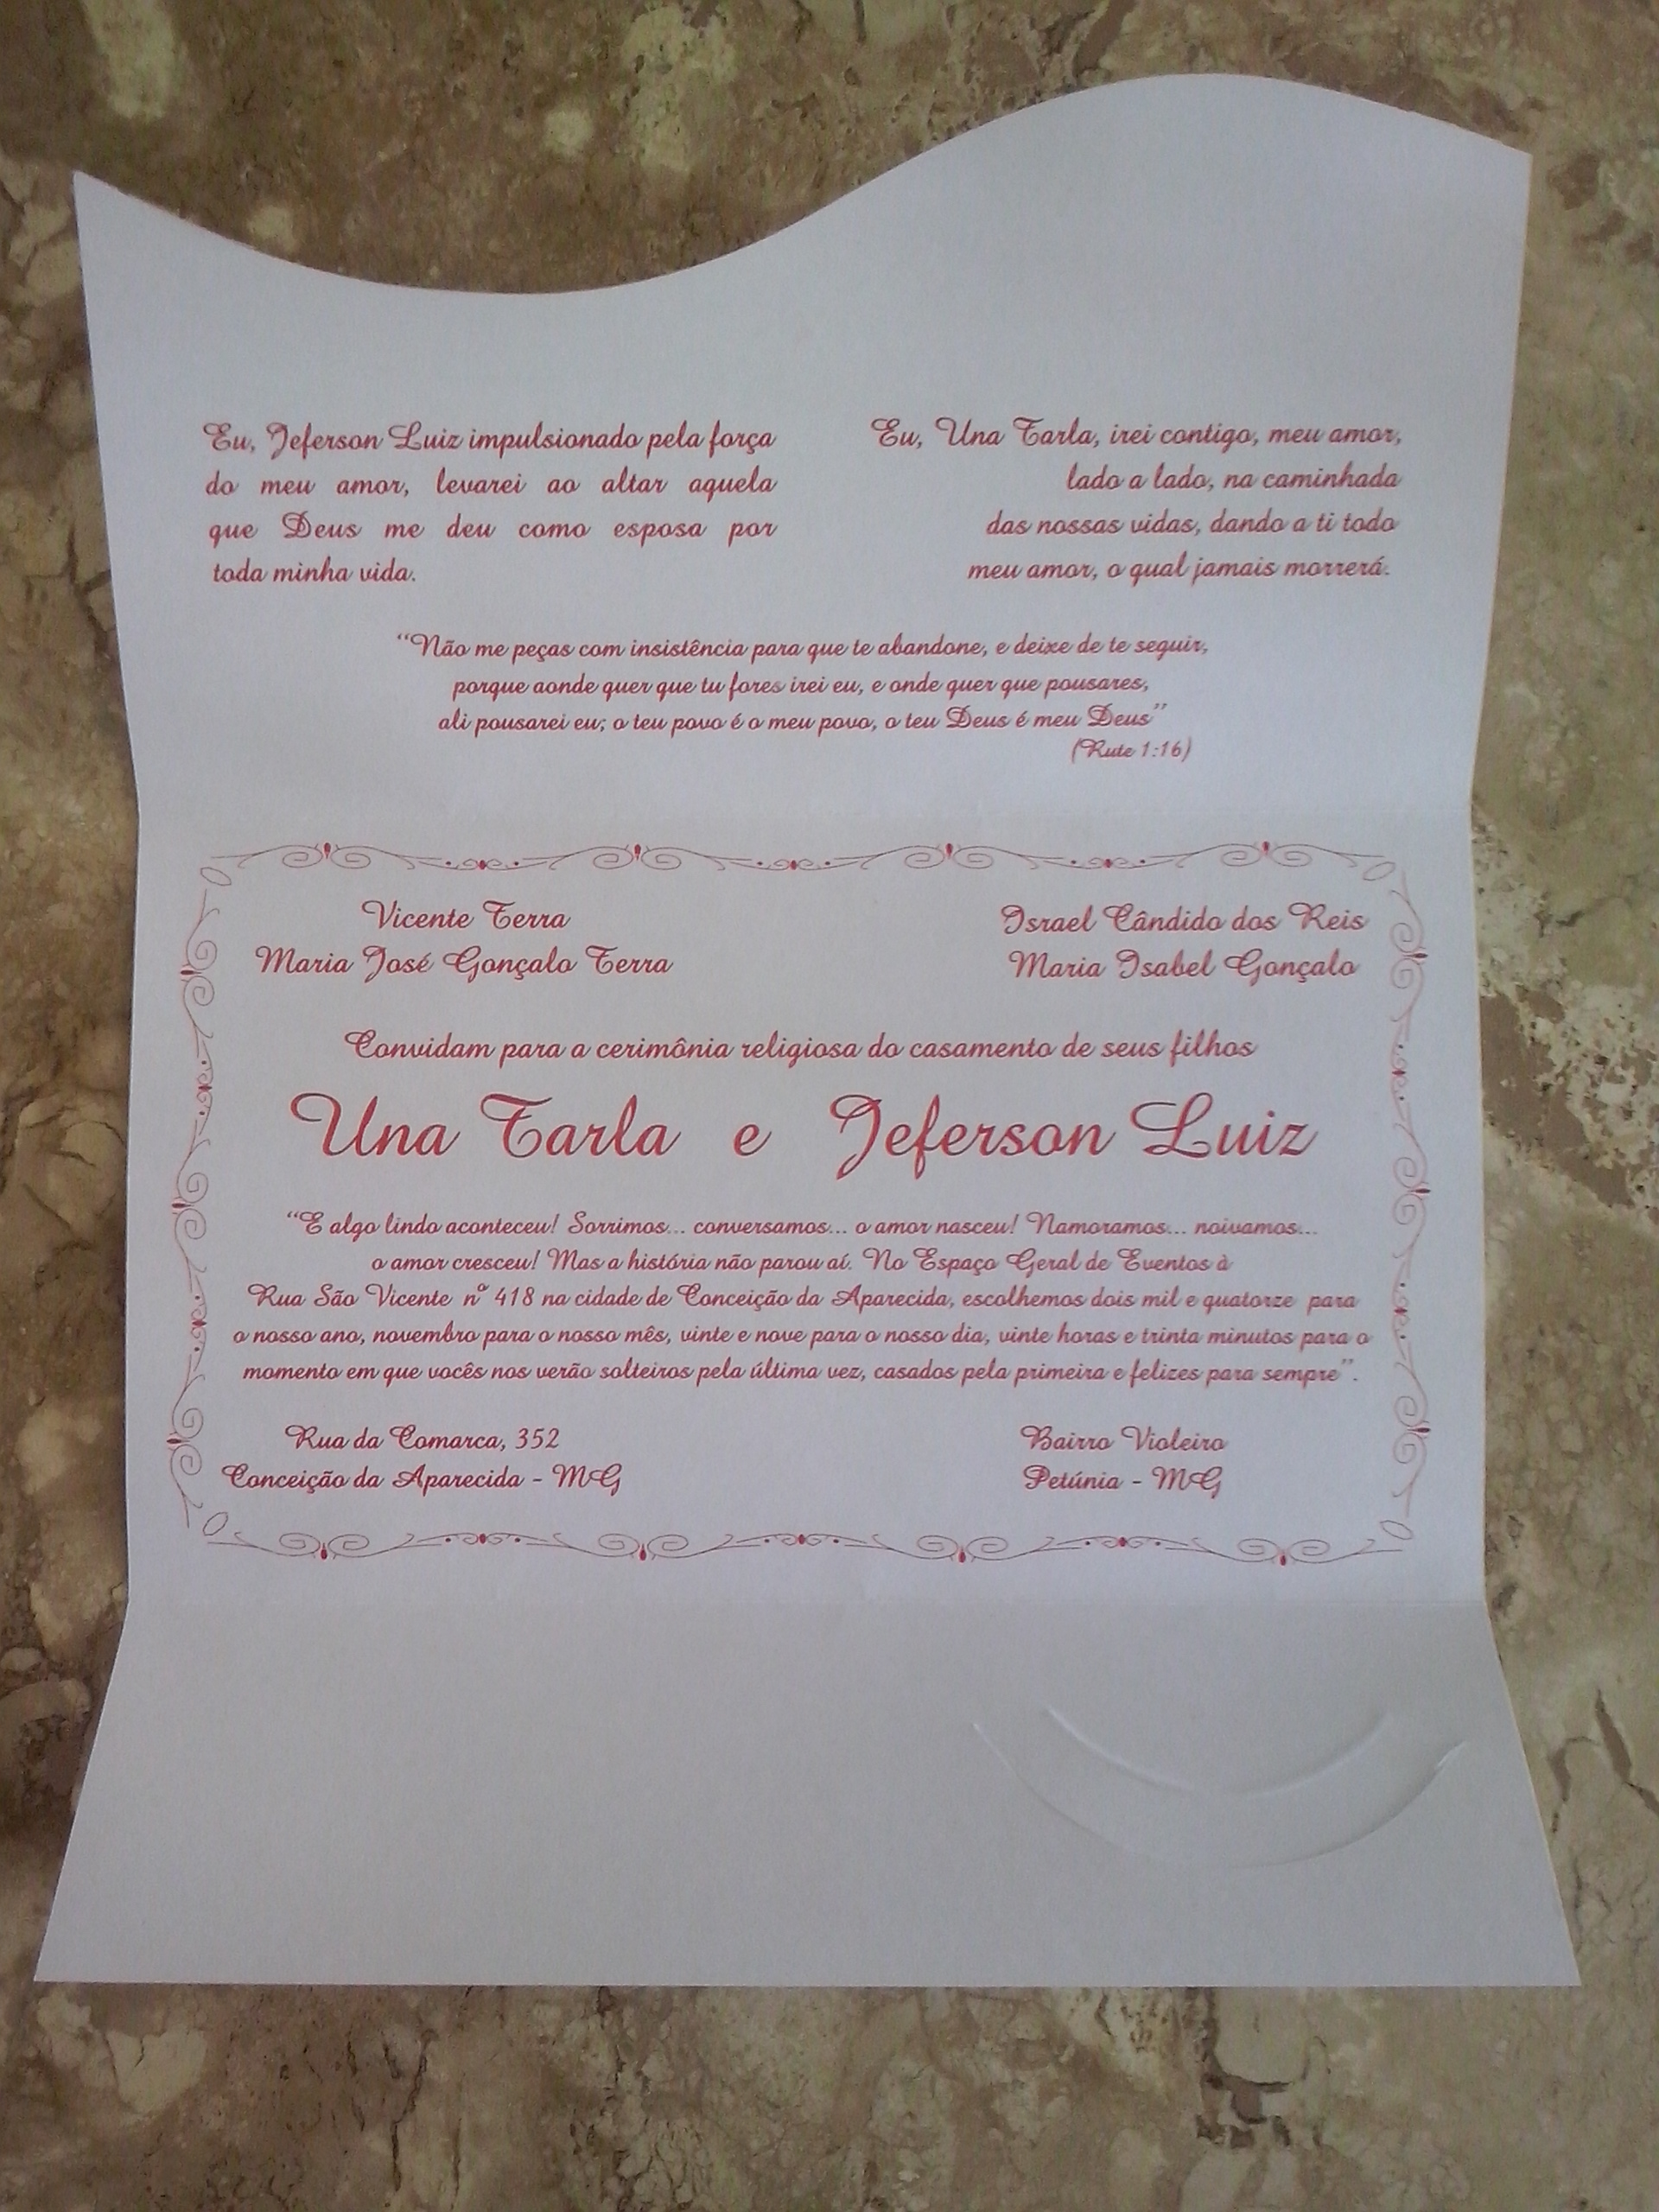 Eu, Jeferson Luiz impulsionado pela força
do meu amor, levarei ao altar aquela
que Deus me deu como esposa por
toda minha vida.
Eu, Una Tarla, irei contigo, meu amor,
lado a lado, na caminhada
das nossas vidas, dando a ti todo
meu amor, o qual jamais morrerá.
“Não me peças com insistência para que te abandone, e deixe de te seguir,
porque aonde quer que tu fores irei eu, e onde quer que pousares,
ali pousarei eu; o teu povo é o meu povo, o teu Deus é meu Deus”
(Rute 1:16)
Vicente Terra
Maria José Gonçalo Terra
Israel Cândido dos Reis
Maria Isabel Gonçalo
Convidam para a cerimônia religiosa do casamento de seus filhos
Una Tarla e Jeferson Luiz
“E algo lindo aconteceu! Sorrimos... conversamos... o amor nasceu! Namoramos... noivamos...
o amor cresceu! Mas a história não parou aí. No Espaço Geral de Eventos à
Rua São Vicente nº 418 na cidade de Conceição da Aparecida, escolhemos dois mil e quatorze para
o nosso ano, novembro para o nosso mês, vinte e nove para o nosso dia, vinte horas e trinta minutos para o
momento em que vocês nos verão solteiros pela última vez, casados pela primeira e felizes para sempre”.
Rua da Comarca, 352
Conceição da Aparecida - MG
Bairro Violeiro
Petúnia - MG